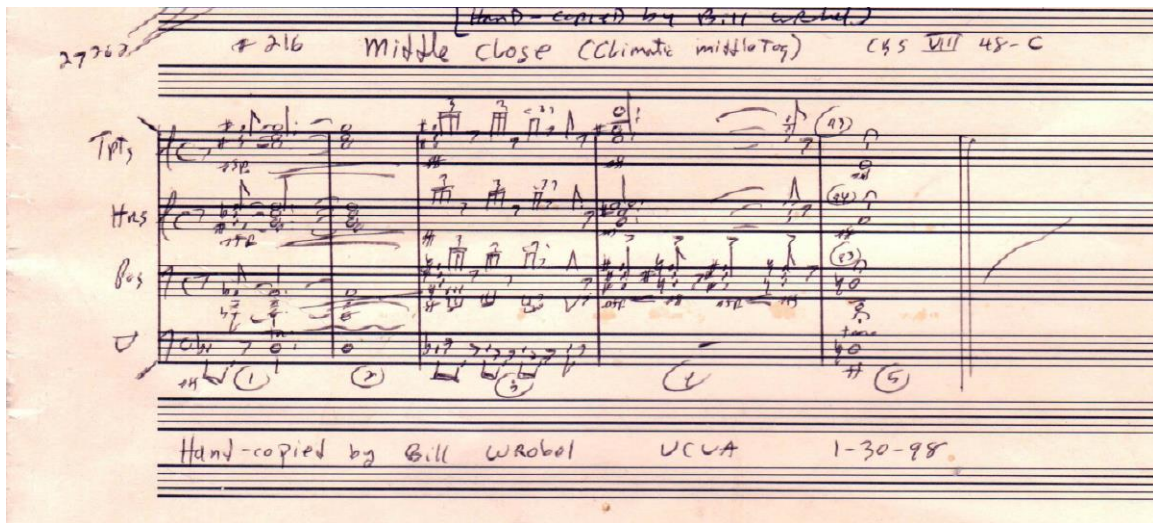 [HanD-copieD by Bill wRobel]
27362 # 216 Middle close (Climatic middle Tag) CBS VIII 48-C
Tpts (a3)
Hrs (a4)
Bos (a3)
tr tone
1 2 3 4 5
Hand-copied by Bill WRobel UCLA 1-30-98